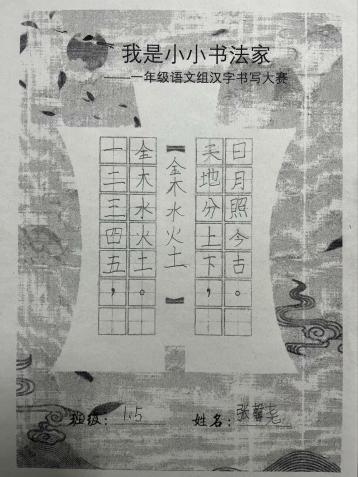 我是小小书法家
——一年级语文组汉字书写大赛
【金木水火土】
一二三四五，
金木水火土。
天地分上下，
日月照今古。
班级：1.5
姓名：张馨尧